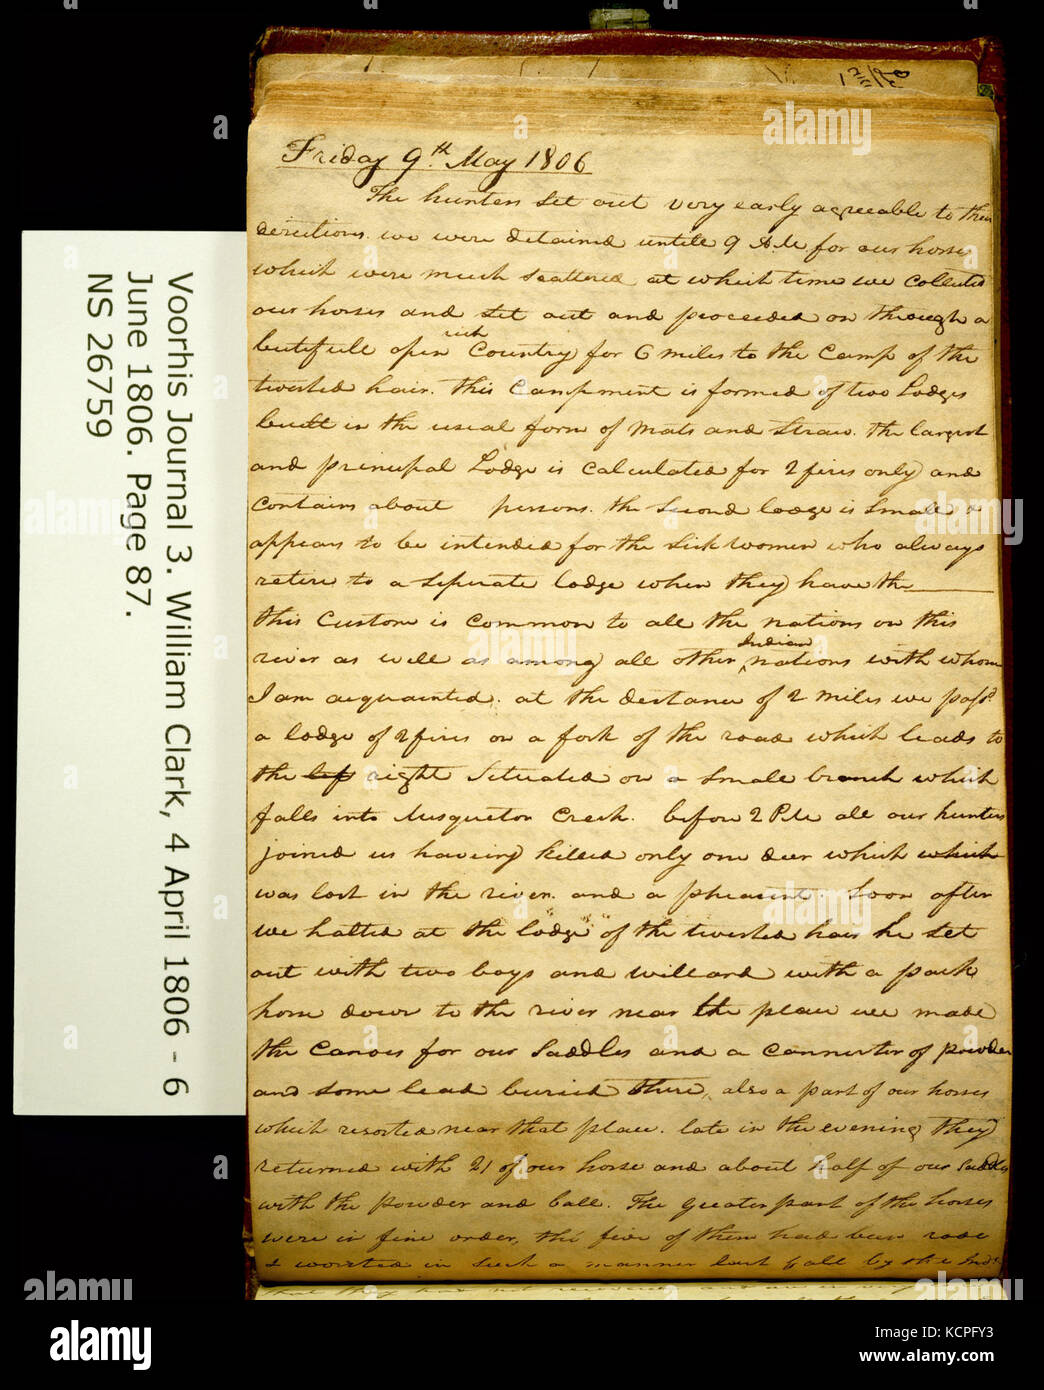 Friday 9th May 1806
The hunters Set out very early agreeable to their
derections. we were detained untill 9 A.M. for our horses
which were much scattered at which time we Collected
our horses and Set out and proceeded on through a
butifull open rich Country for 6 miles to the Camp of the
twisted hair. this Campment is formed of two Lodges
built in the usial form of mats and Straw. the largest
and principal Lodge is Calculated for 2 fires only and
Contains about persons. the Second lodge is Small &
appears to be intended for the Sick women who always
retire to a Seperate lodge when they have the
this Custom is Common to all the nations on this
river as well as among all other Indian nations with whom
I am acquainted. at the distance of 2 miles we passd.
a lodge of 2 fires on a fork of the road which leads to
the left right Situated on a Small branch which
falls into Musqueton Creek. before 2 P.M all our hunters
joined us haveing killed only one deer which which
was lost in the river. and a pheasent. Soon after
we halted at the lodge of the twisted hair he Set
out with two boys and willard with a pack
horse down to the river near the place we made
the Canoes for our Saddles and a Cannister of powder
and Some lead buried there, also a part of our horses
which resorted near that place. late in the evening they
returned with 21 of our horse and about half of our Saddles
with the powder and ball. The greater part of the horses
were in fine order, tho five of them had been rode
& worsted in Such a manner last fall by the Inds.
that they had not recovered and are in very
Voorhis Journal 3. William Clark, 4 April 1806 - 6
June 1806. Page 87.
NS 26759
a
alamy
alamy
Image ID: KCPFY3
www.alamy.com